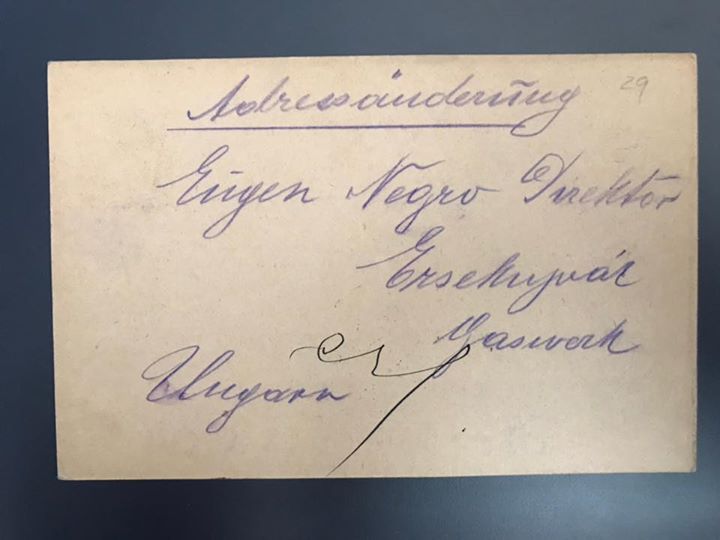 Adressänderung
29
Eugen Negro Direktor
Ersekujvár
Gaswerk
Ungarn